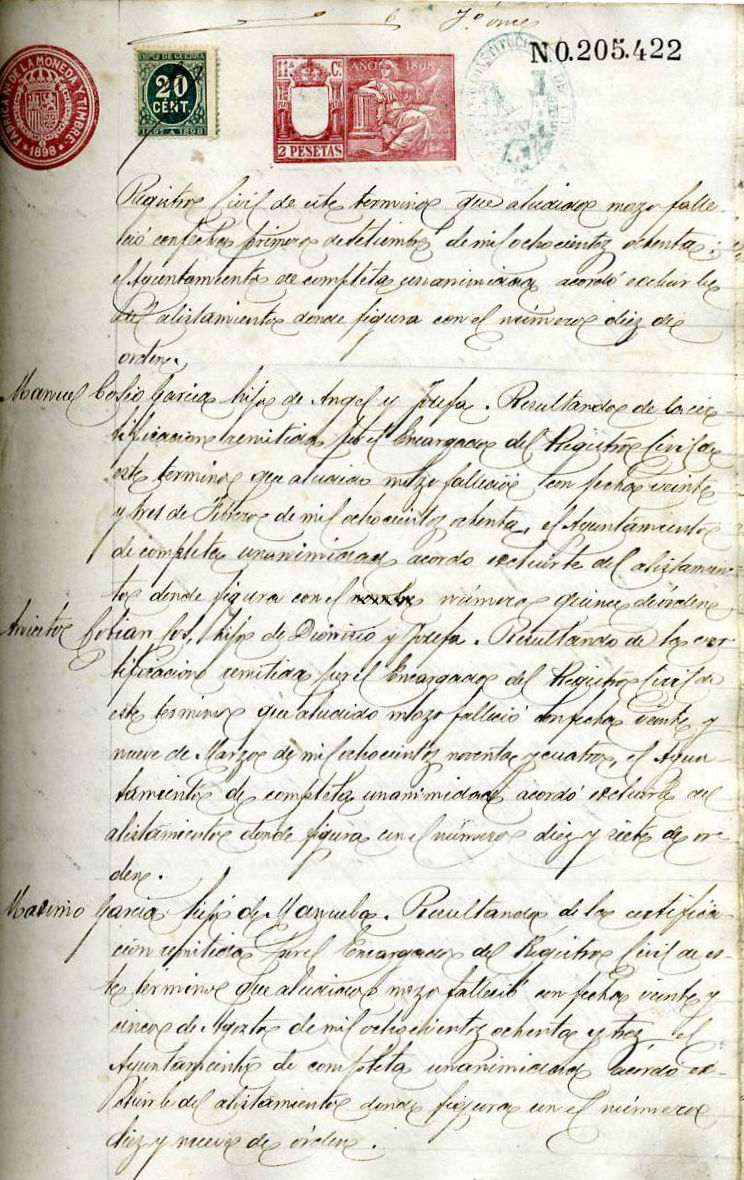 6
FABRICA Nl. DE LA MONEDA Y TIMBRE
* 1898 *
IMPTO DE GUERRA
20
CENT.
1897 A 1898
11ª C.
AÑO 1898
2 PESETAS
N0.205.422
Registro Civil de este termino que aludido mozo falle-
ció con fecha primero de Setiembre de mil ochocientos ochenta;
el Ayuntamiento de completa unanimidad acordó excluirle
del alistamiento donde figura con el número diez de
orden.
Manuel Cosio Garcia hijo de Angel y Josefa. Resultando de la cer-
tificacion remitida por el Encargado del Registro Civil de
este termino que aludido mozo falleció con fecha veinte
y tres de Febrero de mil ochocientos ochenta, el Ayuntamiento
de completa unanimidad acordo excluirle del alistamien-
to donde figura con el número quince de órden
Aniceto Cobian Cos, hijo de Dionisio y Josefa. Resultando de la cer-
tificacion remitida por el Encargado del Registro Civil de
este termino que aludido mozo falleció con fecha veinte y
nueve de Marzo de mil ochocientos noventa y cuatro, el Ayun-
tamiento de completa unanimidad acordó excluirle del
alistamiento donde figura con el número diez y siete de or-
den.
Maximo Garcia hijo de Manuela. Resultando de la certifica-
cion remitida por el Encargado del Registro Civil de es-
te término que aludido mozo falleció con fecha veinte y
cinco de Agosto de mil ochocientos ochenta y tres, el
Ayuntamiento de completa unanimidad acórdó ex-
cluirle del alistamiento donde figura con el número
diez y nueve de órden.